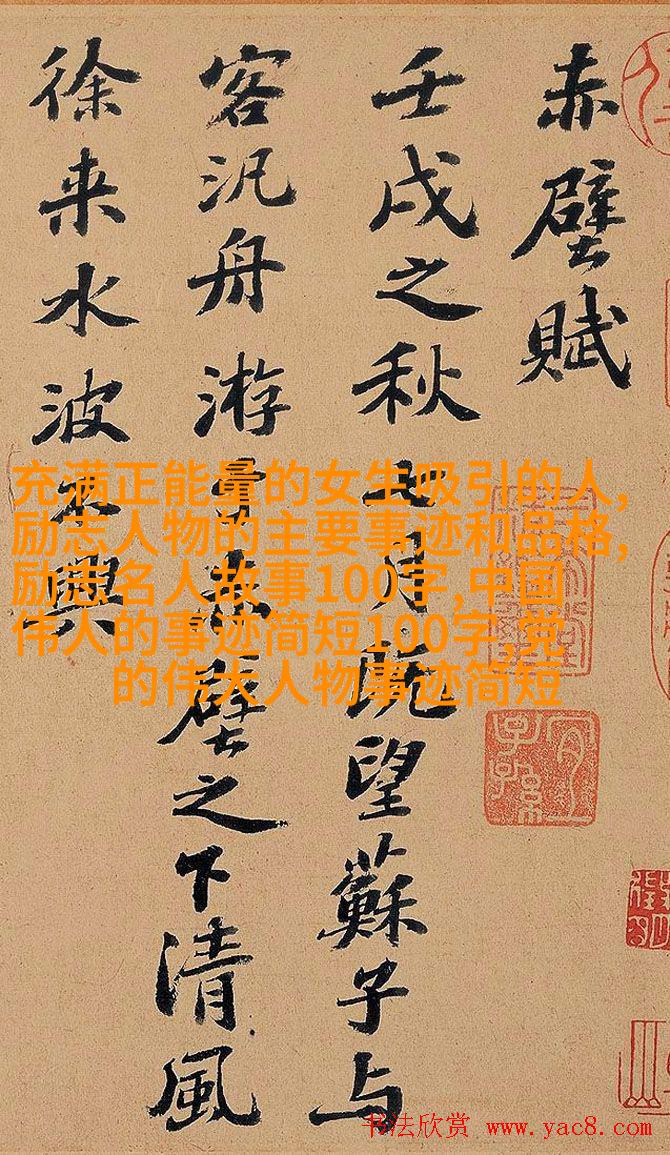 赤壁賦
壬戌之秋七月既望蘇子与
客汎舟游于赤壁之下清風
徐来水波不興
充满正能量的女生吸引的人,
励志人物的主要事迹和品格,
励志名人故事100字,中国
伟人的事迹简短100字,党
的伟大人物事迹简短
书法欣赏 www.yac8.com